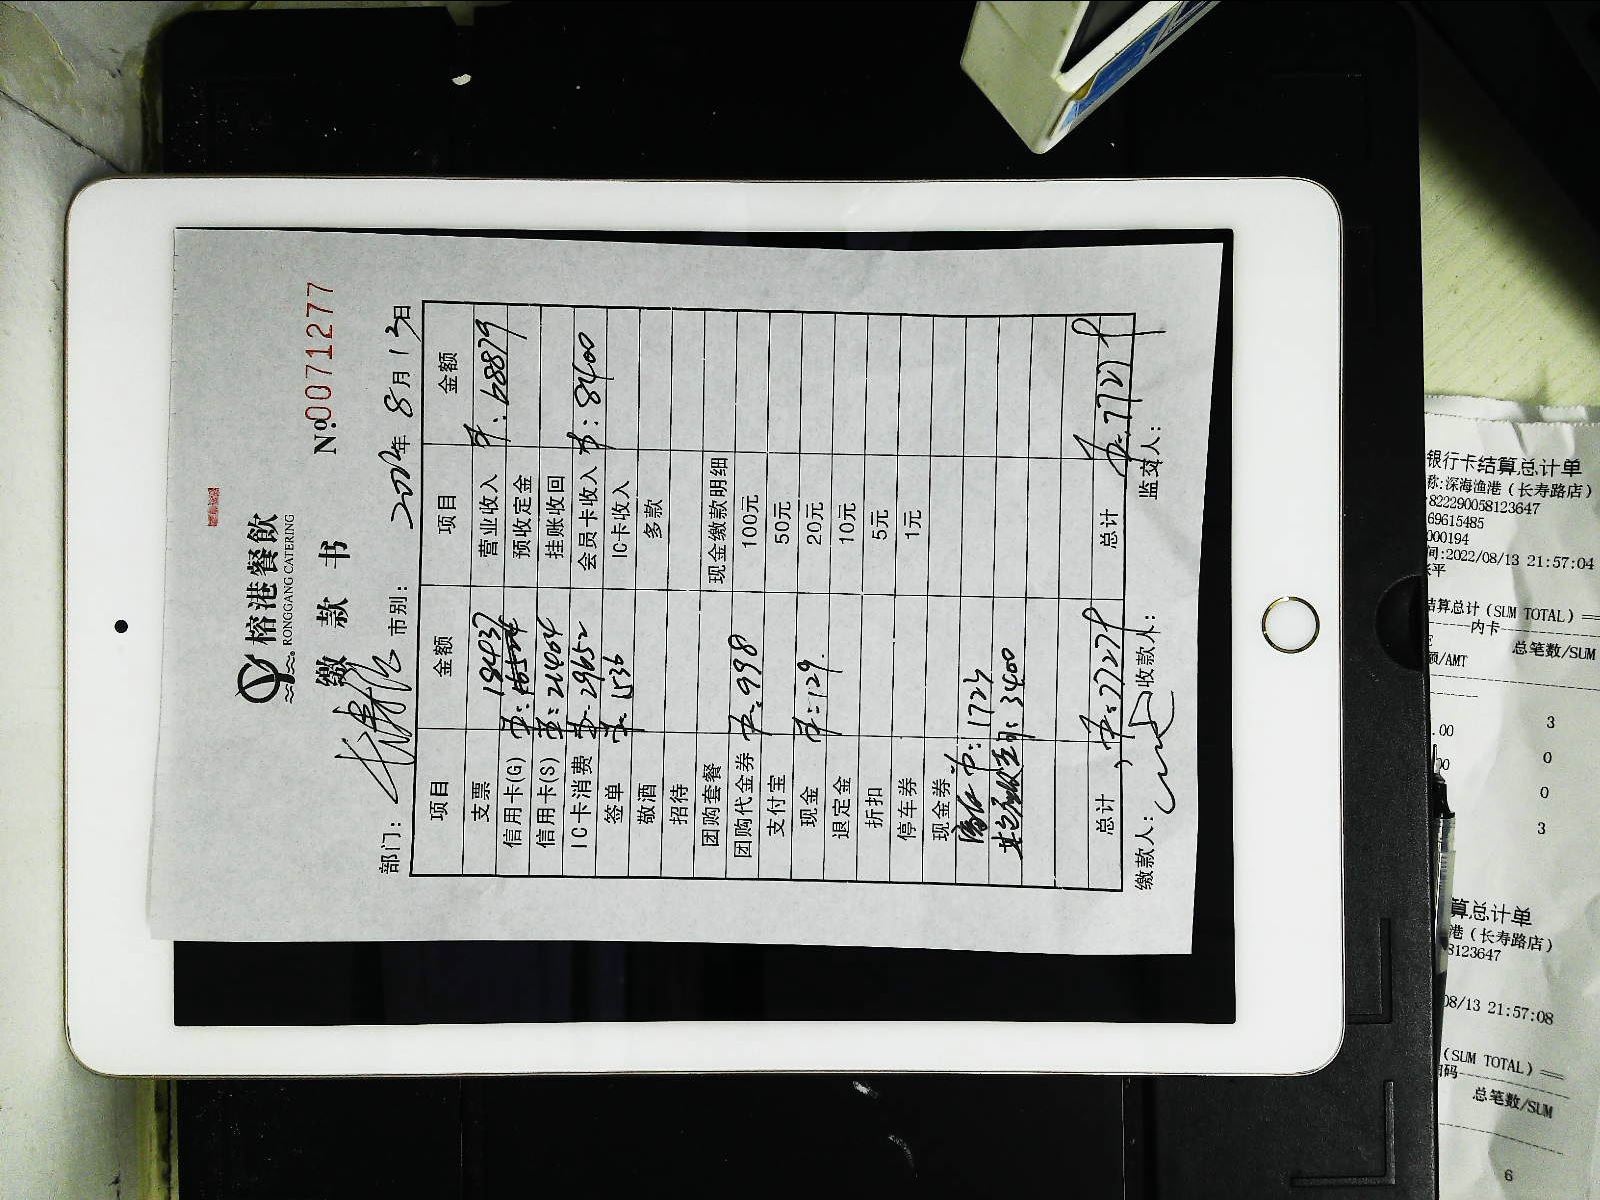 榕港餐飲
RONGGANG CATERING
缴 款 书
№ 0071277
部门: 长寿路 市别: 2022年 8月 13日
项目 金额 项目 金额
支票 18437 营业收入 68879
信用卡(G) 预收定金
信用卡(S) 21404 挂账收回
IC卡消费 29652 会员卡收入 8400
签单 1536 IC卡收入
敬酒 多款
招待
团购套餐 现金缴款明细
团购代金券 998 100元
支付宝 50元
现金 129. 20元
退定金 10元
折扣 5元
停车券 1元
现金券
1723
3400
总计 77279 总计 77279
缴款人: 收款人: 监交人:
银行卡结算总计单
称:深海渔港(长寿路店)
822290058123647
69615485
000194
间:2022/08/13 21:57:04
张平
结算总计(SUM TOTAL)==
内卡
总笔数/SUM
额/AMT
3
.00
0
00
0
3
算总计单
港(长寿路店)
8123647
08/13 21:57:08
(SUM TOTAL)==
扫码
总笔数/SUM
6